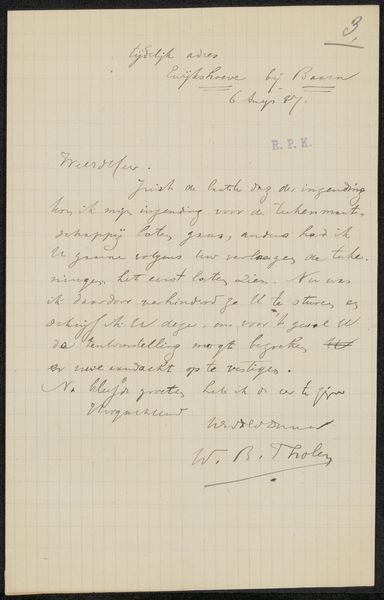 3
tijdelijk adres
Ewijkshoeve bij Baarn
6 Aug 87.
R. P. K.
Juist de laatste dag der inzending
kon ik mijn inzending voor de teekenmaat-
schappij laten gaan, anders had ik
U gaarne volgens Uw verlangen de teeke-
ningen het eerst laten zien. Nu was
ik daardoor verhinderd ze U te sturen en
schrijf ik U deze om voor 't geval U
de tentoonstelling mogt bezoeken
er uwe aandacht op te vestigen.
Na groeten heb ik de eer te zijn
Hoogachtend
W. B. Tholen